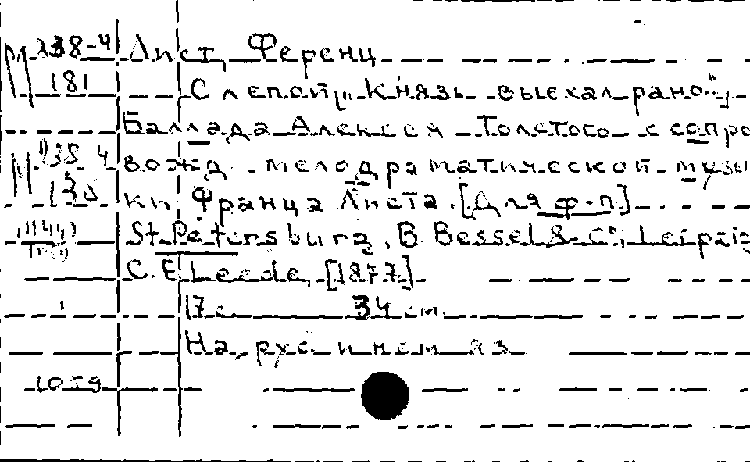 М 238-4 Лист, Ференц
181 Слепой „Князь выехал рано...“
Баллада Алексея Толстого с сопро
М 238-4 вожд. мелодраматической музы
ки Франца Листа. [Для ф-п]
St. Petersburg, B. Bessel & C°; Leipzig
C. F. Leede, [1877]
17 с. 34 см.
На рус. и нем яз
1059